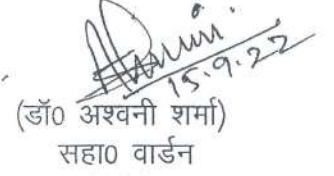 15.9.22
(डॉ0 अश्वनी शर्मा)
सहा0 वार्डन